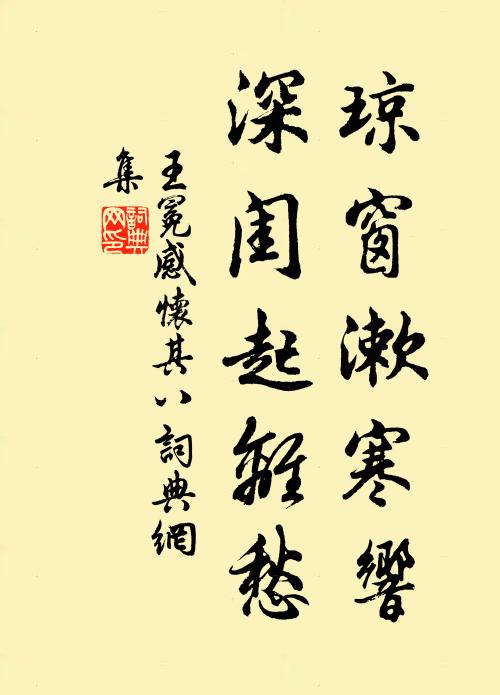 琼窗漱寒響
深闺起離愁
王冕感懷其八詞典網
集
詞典
网印